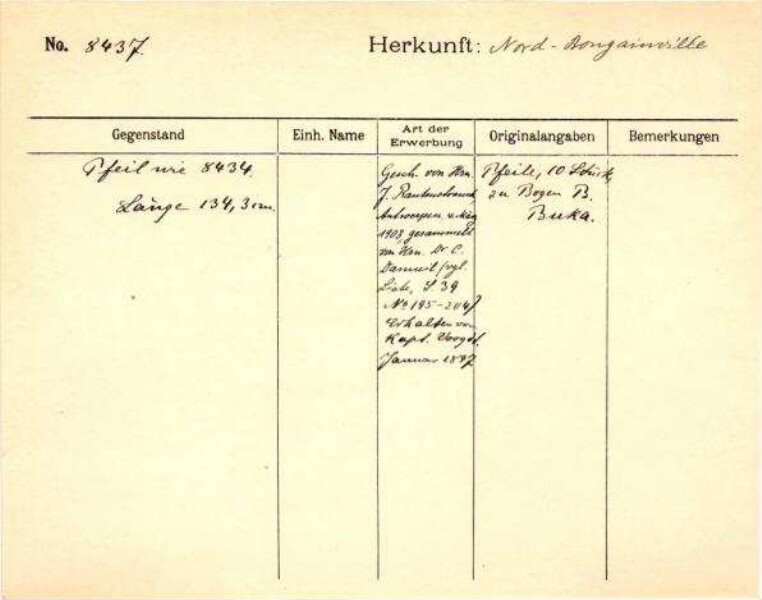 No. 8437. Herkunft: Nord-Bougainville
Gegenstand Einh. Name Art der Erwerbung Originalangaben Bemerkungen
Pfeil wie 8434.
Länge 134,3 cm.
Gesch. von Hrn.
J. Rautenstrauch,
Antwerpen, v. März
1903, gesammelt
von Hrn. Dr C.
(vgl.
Liste, S. 39
No 195-204)
Erhalten von
Kapt. 
Januar 1897
Pfeile, 10 Stück,
zu Bogen B.
Buka.